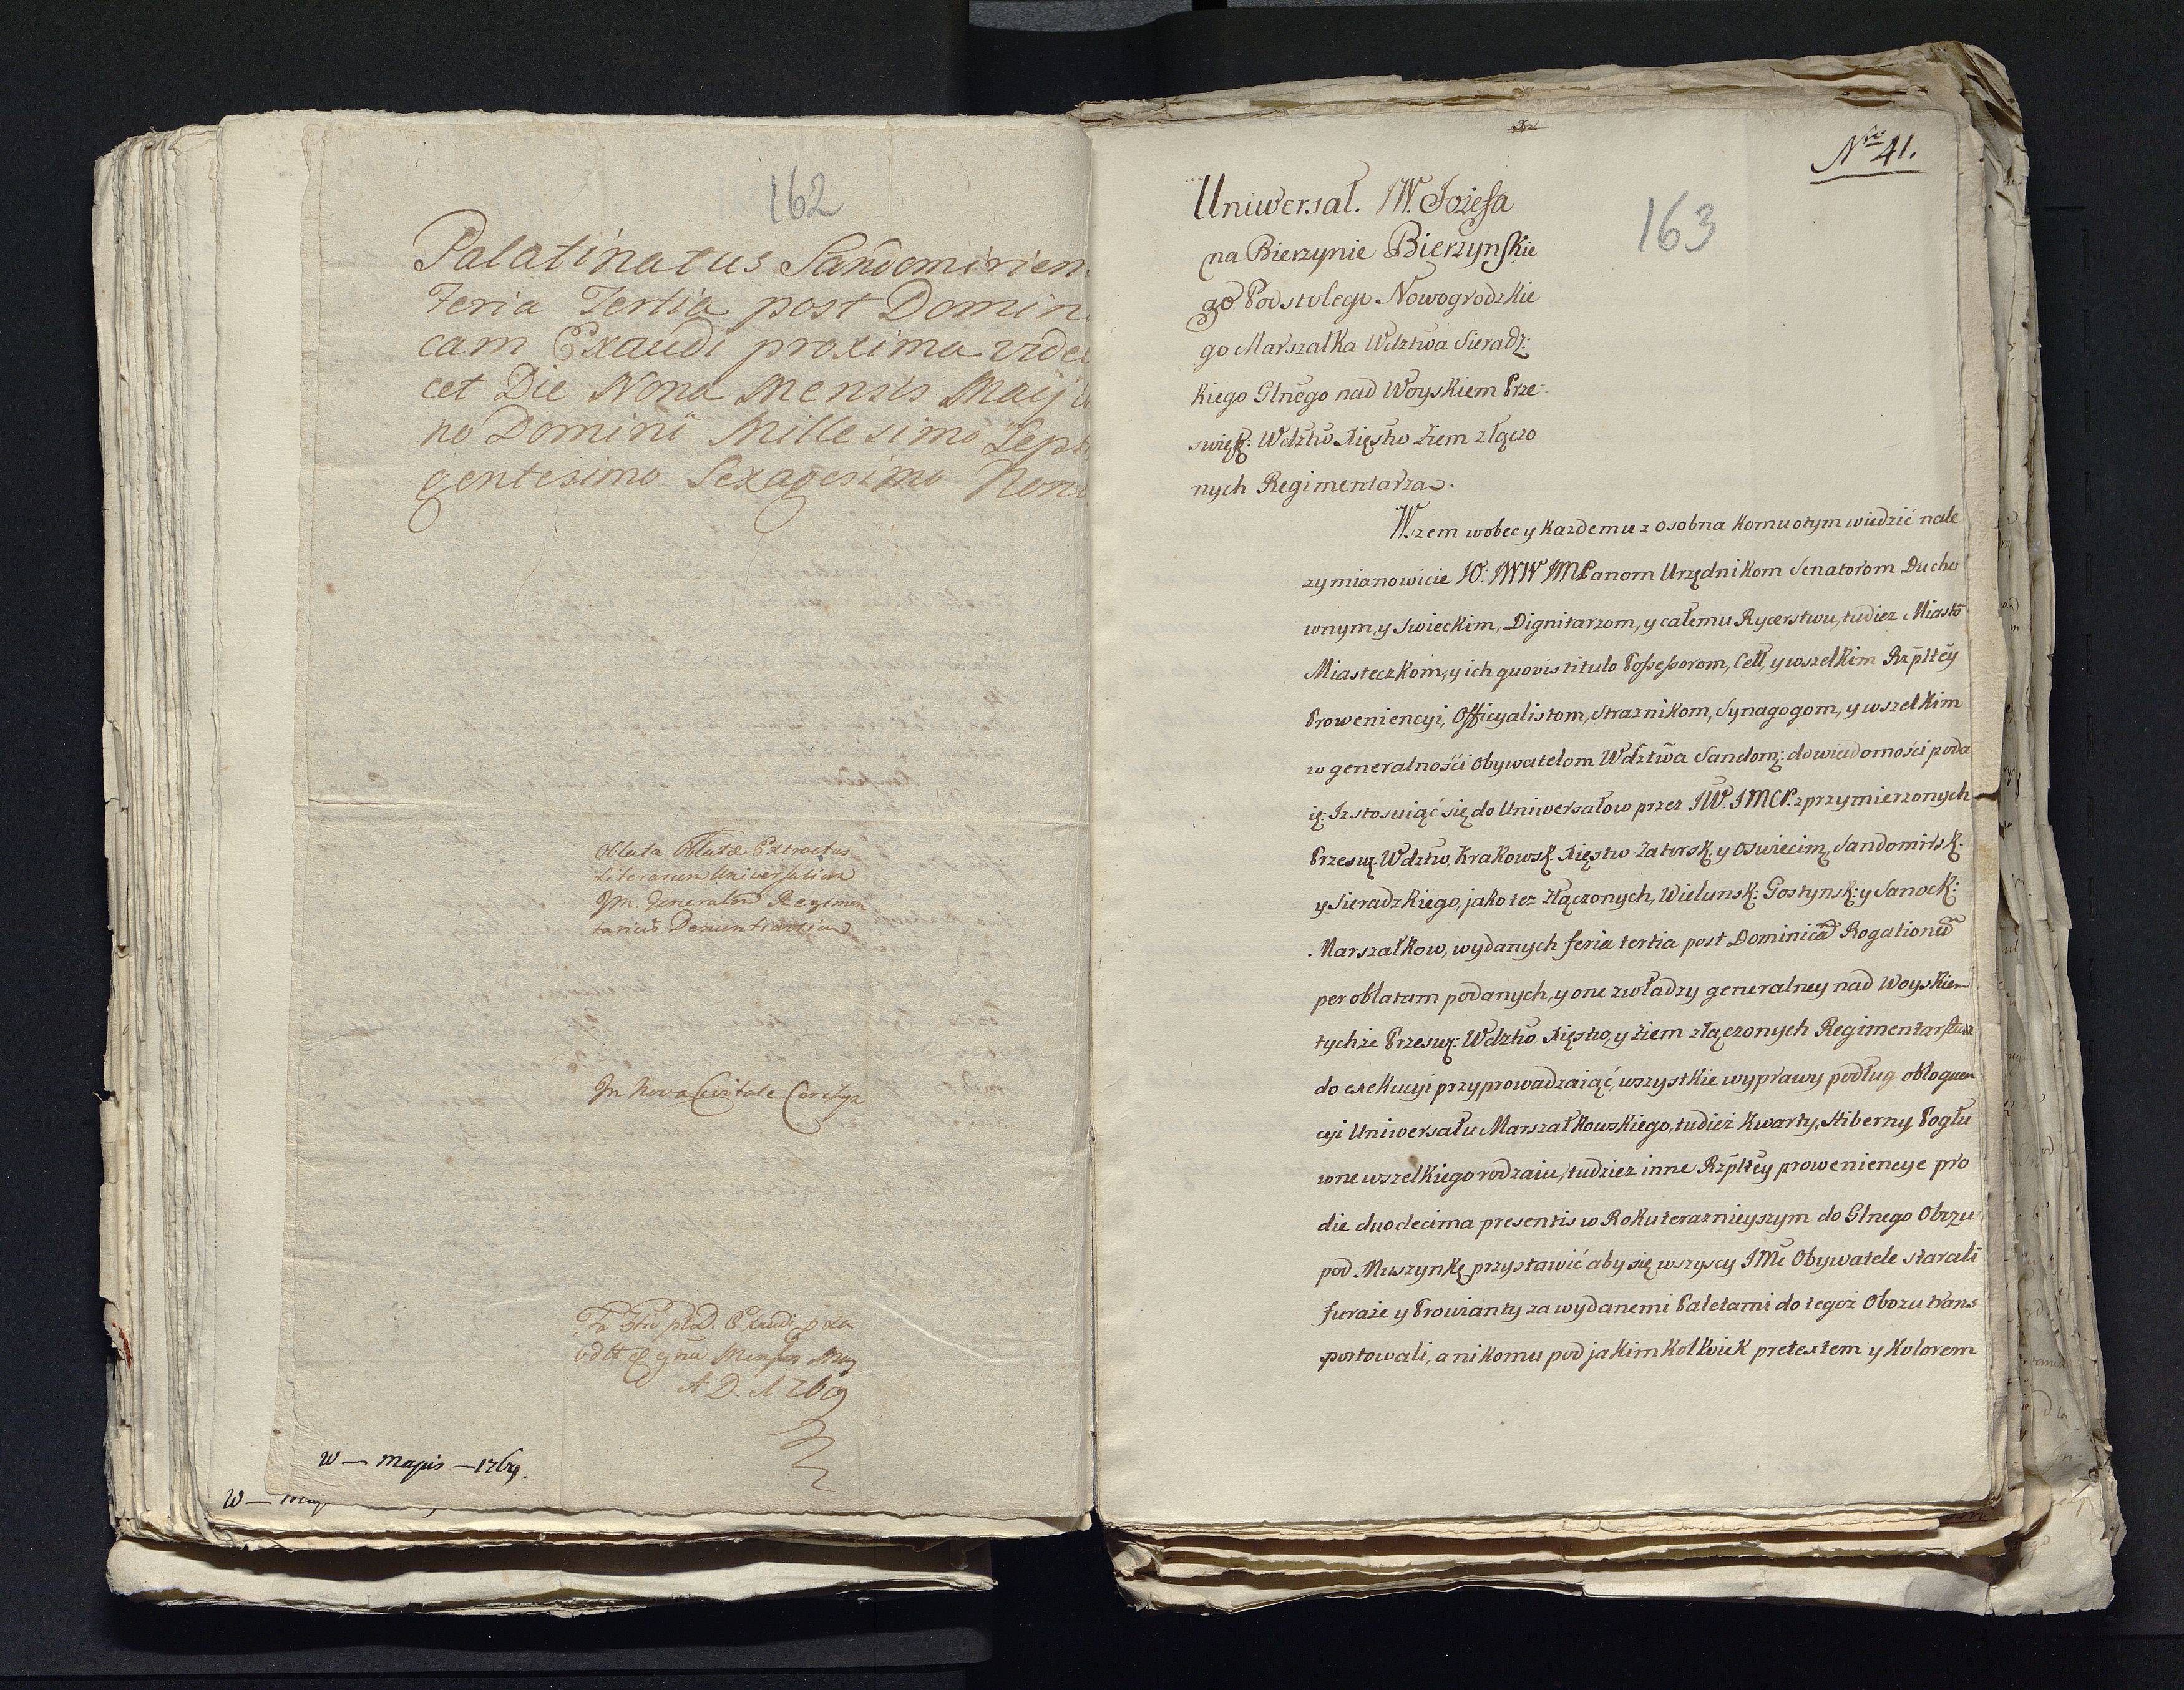 162
Palatinatus Sandomirien
Feria Tertia post Domini
cam Exaudi proxima videl
cet Die Nona Mensis Maij
no Domini Millesimo Sept
gentesimo Sexagesimo Nono
Oblata Oblatæ Extractus
Literarum Universalium
Jm. Generalem Regimen
tarium Denuntiantium
In Nova Civitate Corczyn
Fa 3tia ptD. Exaudi pxa
vdlt 9na Mensis May
A D. 1769
W — Majus — 1769.
W — May
Nro 41.
163
Uniwersał. JW. Jozefa
na Bierzynie Bierzynskie
go Podstolego Nowogrodzkie
go Marszałka Wdztwa Sieradz:
kiego Glnego nad Woyskiem Prze:
swięt: Wdztw Xięstw Ziem złączo
nych Regimentarza.
Wszem wobec y kazdemu z osobna komu otym wiedzić nale
zy mianowicie JO: JWW JMPanom Urzędnikom Senatorom Ducho
wnym, y swieckim, Dignitarzom, y całemu Rycerstwu, tudiez Miastō
Miasteczkom, y ich quovis titulo Possessorom, Cełł, y wszelkim Rzpltey
Proweniencyi, Officyalistom, Straznikom, Synagogom, y wszelkim
w generalnośći Obywatelom Wdztwa Sandom: do wiadomośći poda
ię: Iz stosuiąć się do Uniwersałow przez JW. JMCP. zprzymierzonych
Przesw. Wdztw, Krakowsk. Xięstw Zatorsk, y Oswiecim, Sandomirsk.
y Sieradzkiego, jako tez Złączonych, Wielunsk: Gostynsk: y Sanock:
Marszałkow, wydanych feria tertia post Dominicam Rogationum
per oblatam podanych, y one zwładzy generalney nad Woyskiem
tychże Przesw: Wdztw Xięstw, y Ziem złączonych Regimentarstwa
do exekucyi przyprowadzaiąć, wszystkie wyprawy podług obloquen
cyi Uniwersału Marszałkowskiego, tudież Kwarty, Hiberny, Pogłu
wne wszelkiego rodzaiu, tudziez inne Rzpltey proweniencye pro
die duodecima presentis w Roku terazńieyszym do Glnego Obozu
pod Muszynkę przystawić aby się wszyscy JMć Obywatele starali
furaże y Prowianty za wydanemi Paletami do tegoż Obozu trans
portowali, a nikomu pod jakimkolwiek pretextem y kolorem